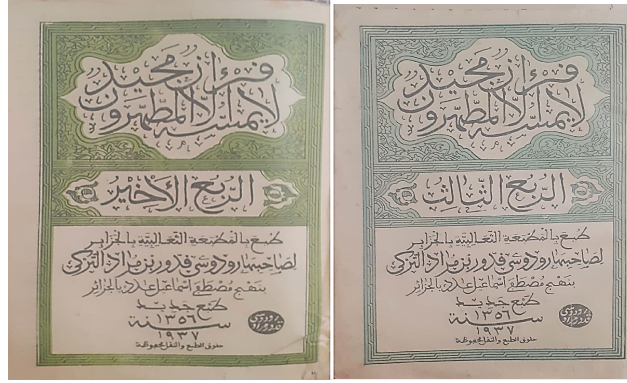 قرءان مجيد
لا يمسه الا المطهرون
الربع الأخير
طبع بالمطبعة الثعالبية بالجزائر
لصاحبها رودوسي قدور بن مراد التركي
بنهج مصطفى اسماعيل عدد بالجزائر
طبع جديد
سنة ١٣٥٦
١٩٣٧
حقوق الطبع والنقل محفوظة
قرءان مجيد
لا يمسه الا المطهرون
الربع الثالث
طبع بالمطبعة الثعالبية بالجزائر
لصاحبها رودوسي قدور بن مراد التركي
بنهج مصطفى اسماعيل عدد بالجزائر
طبع جديد
سنة ١٣٥٦
١٩٣٧
حقوق الطبع والنقل محفوظة